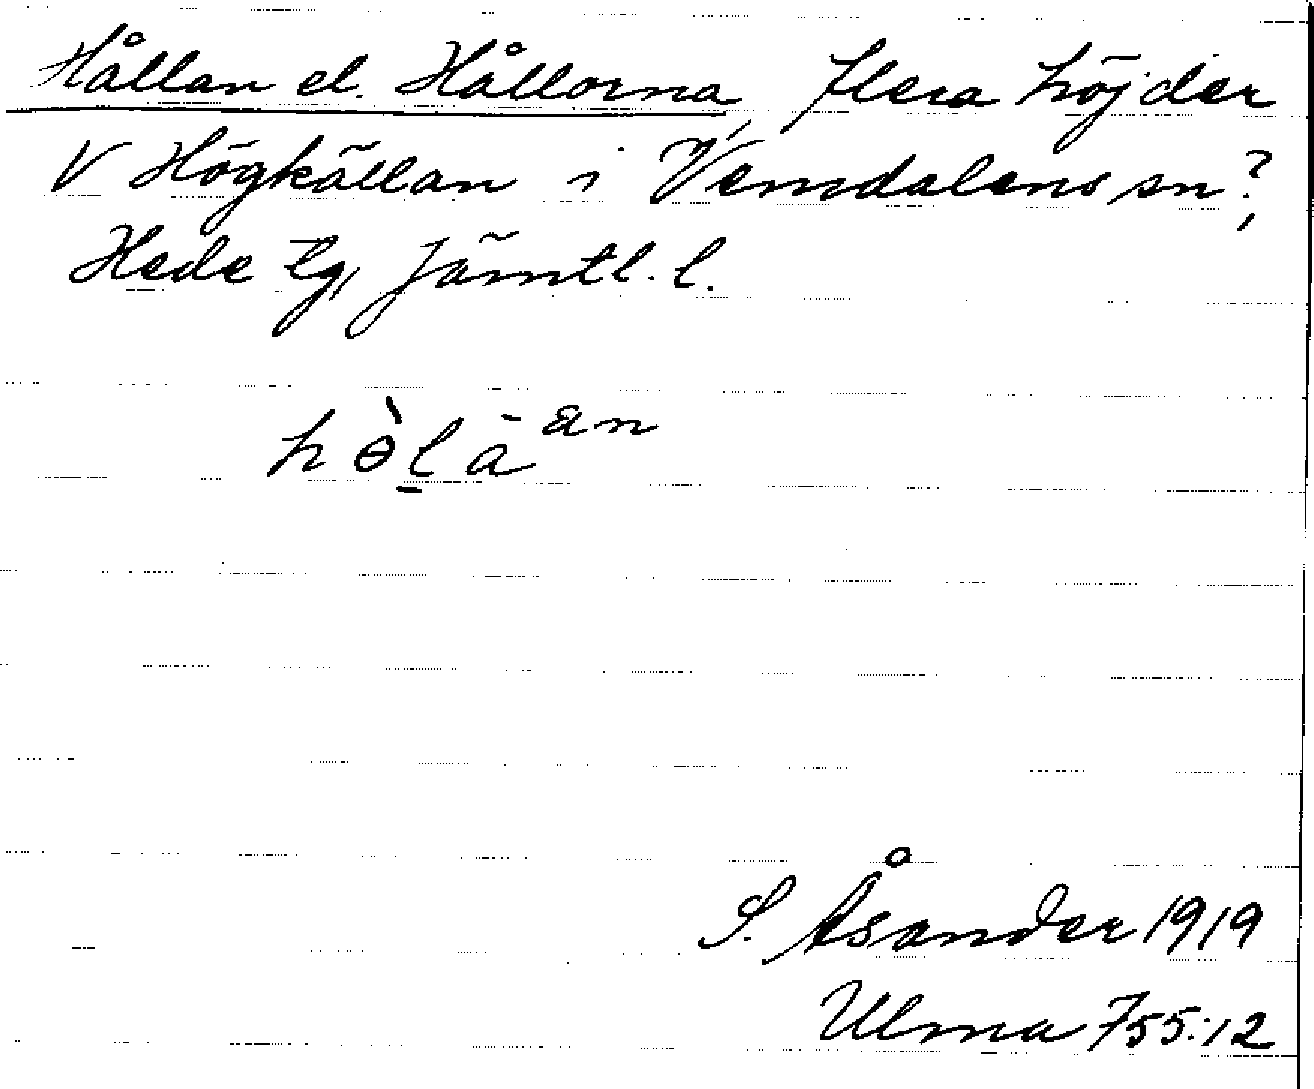 Hållan el. Hållorna, flera höjder
V Högkällan i Vemdalens sn?,
Hede tg, Jämtl. l.
hòl̠ā än
S. Åsander 1919
Ulma 755:12